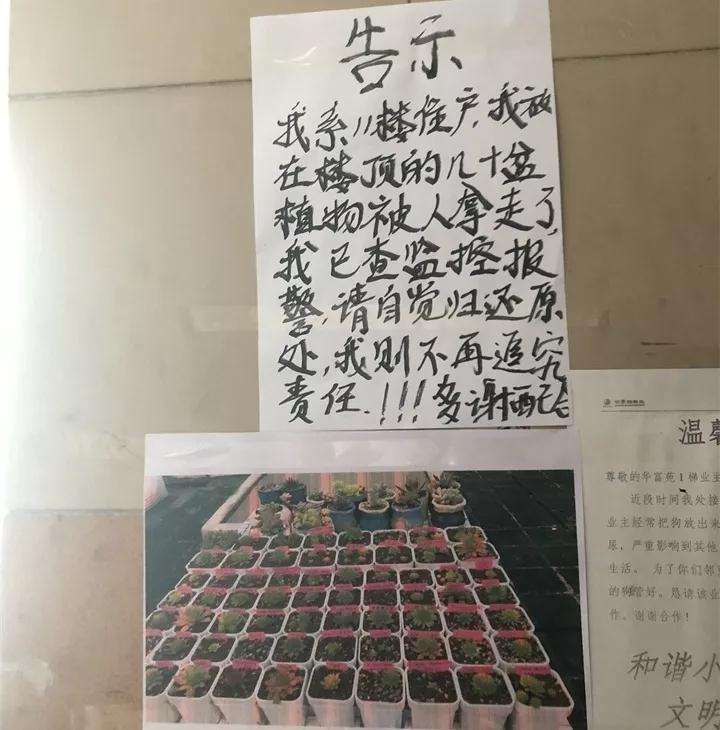 告示
我系11楼住户,我放
在楼顶的几十盆
植物被人拿走了,
我已查监控报
警,请自觉归还原
处,我则不再追究
责任.!!!多谢配合
温馨
尊敬的华富苑1梯业主
近段时间我处接
业主经常把狗放出来
尿,严重影响到其他
生活。为了你们邻
的物管好。恳请该业
作。谢谢合作!
和谐小
文明